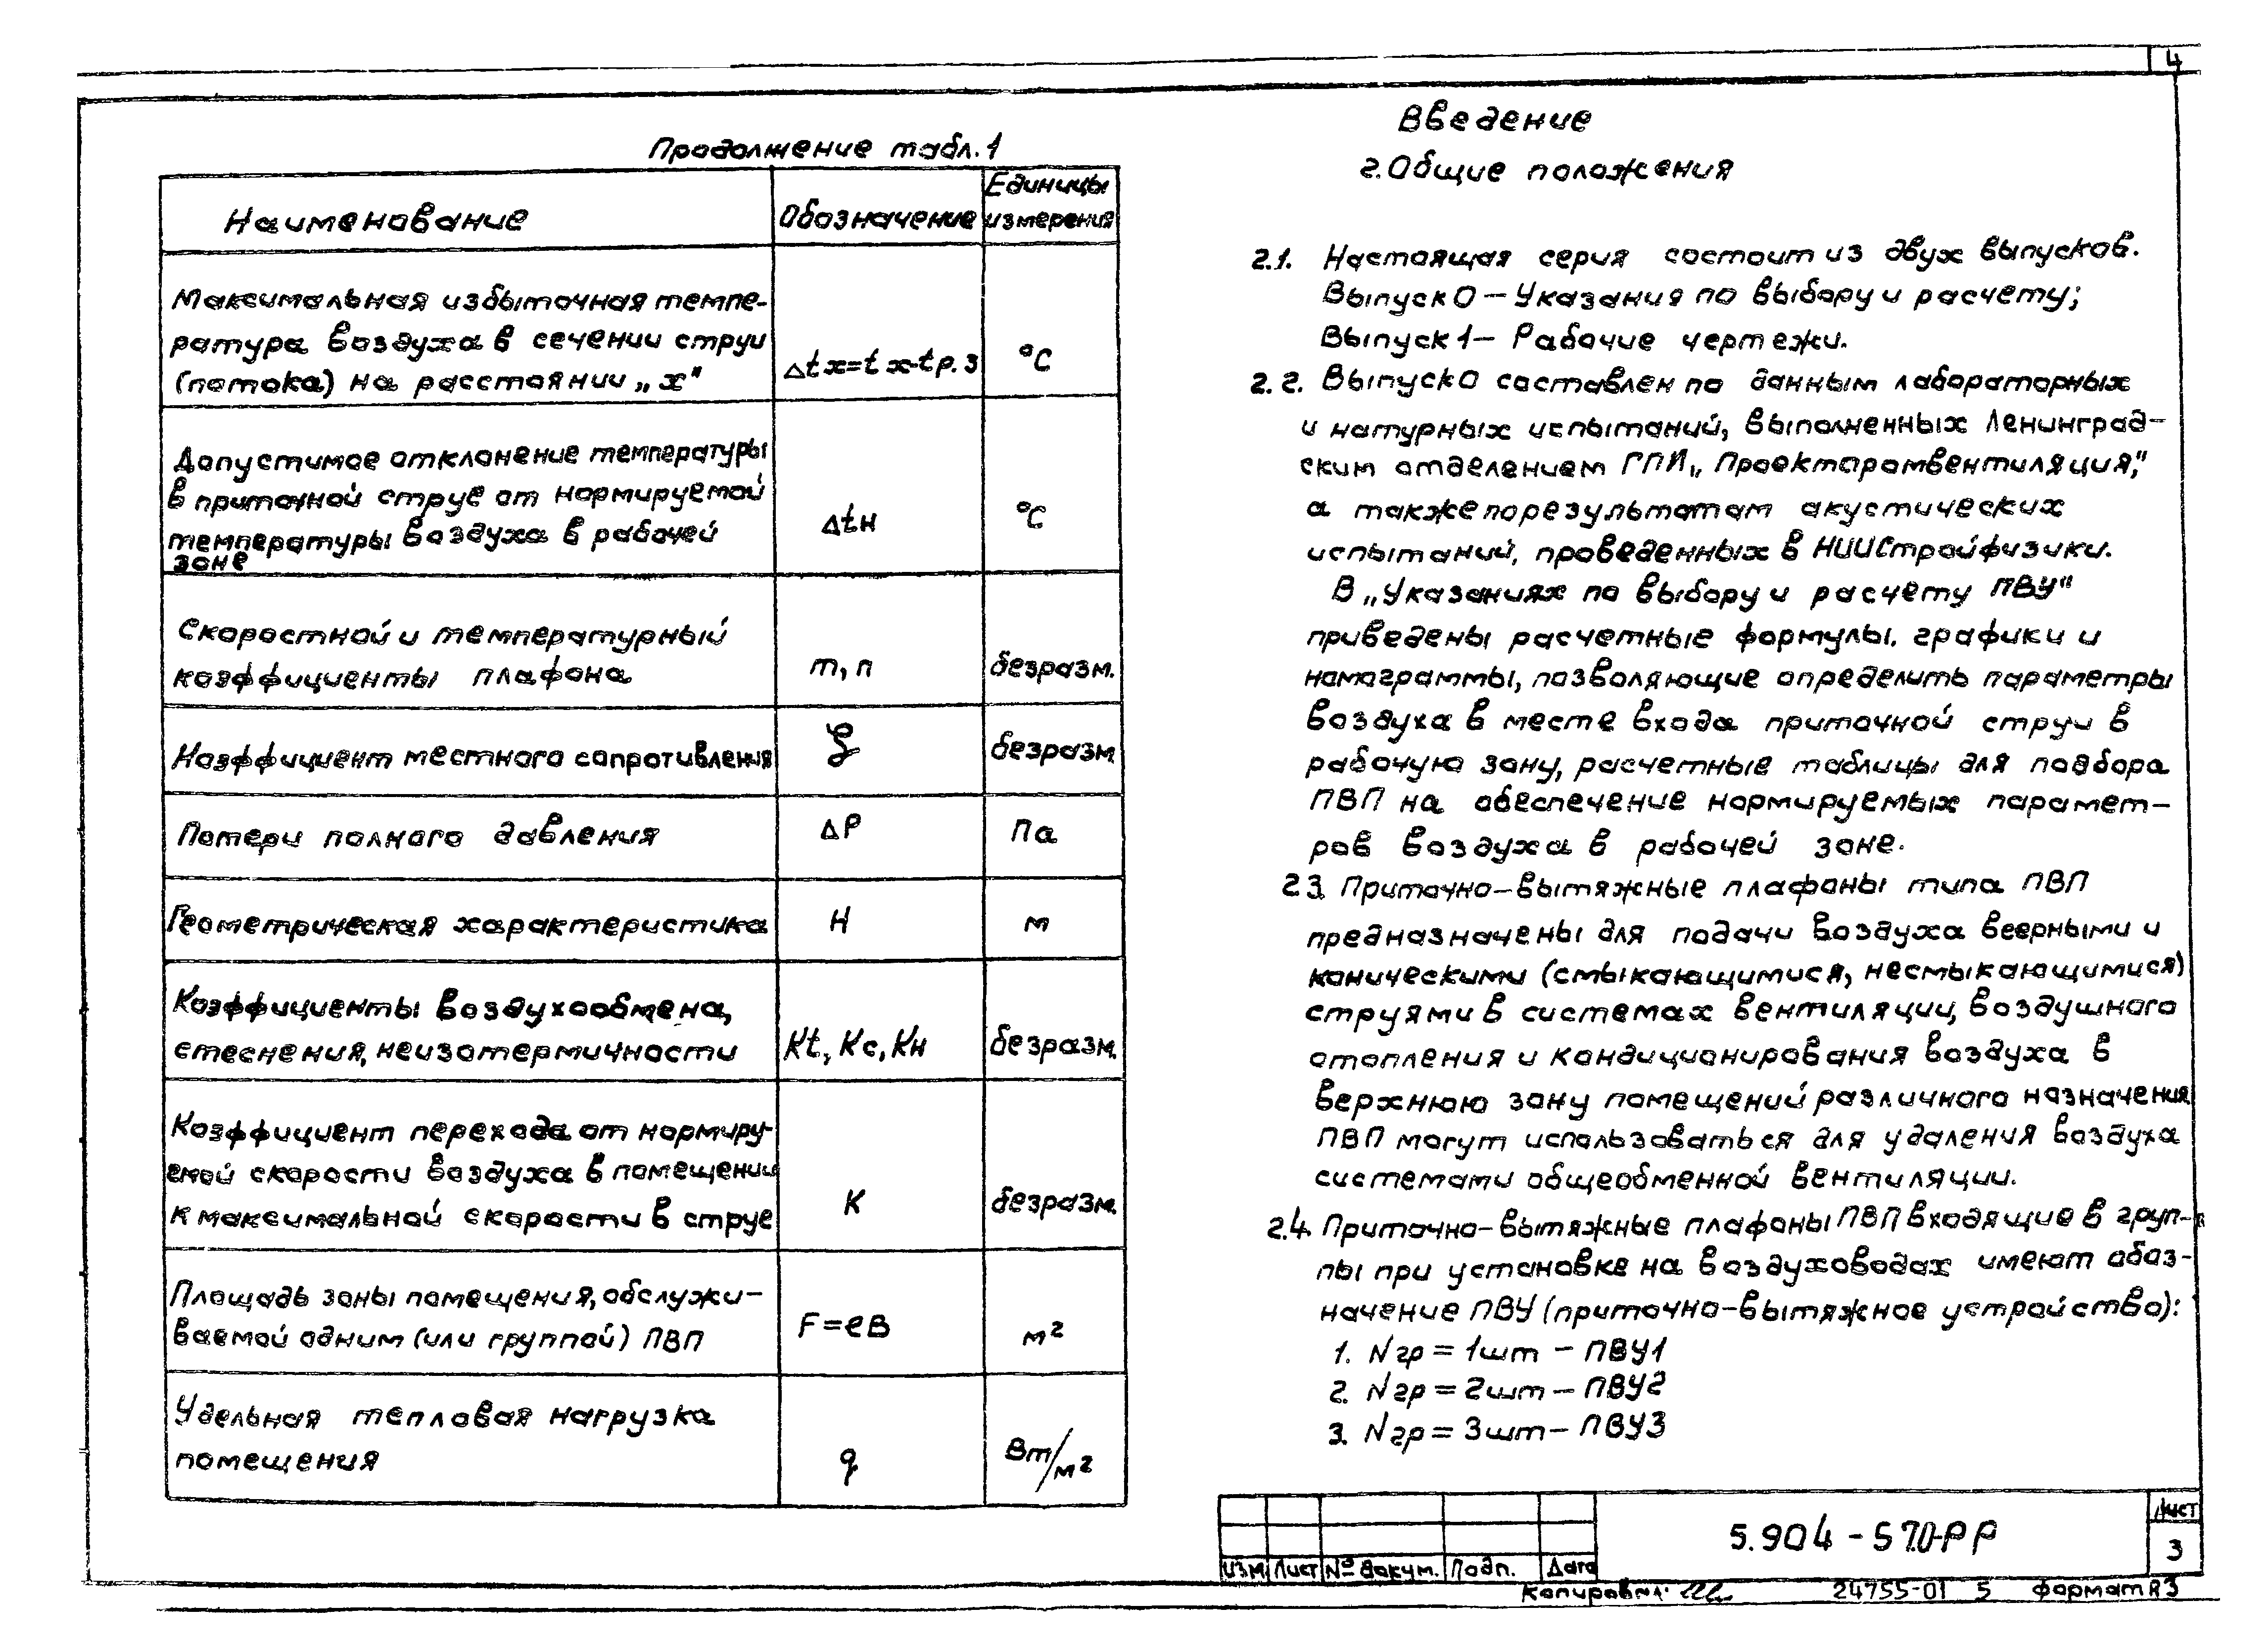 4
Продолжение табл. 1
Наименование
Обозначение
Единицы
измерения
Максимальная избыточная темпе-
ратура воздуха в сечении струи
(потока) на расстоянии „х"
Δtx=tx-tр.з
°С
Допустимое отклонение температуры
в приточной струе от нормируемой
температуры воздуха в рабочей
зоне
Δtн
°С
Скоростной и температурный
коэффициенты плафона
m, n
безразм.
Коэффициент местного сопротивления
ζ
безразм.
Потери полного давления
ΔP
Па
Геометрическая характеристика
H
м
Коэффициенты воздухообмена,
стеснения, неизотермичности
Kt, Kc, Kн
безразм.
Коэффициент перехода от нормиру-
емой скорости воздуха в помещении
к максимальной скорости в струе
К
безразм.
Площадь зоны помещения, обслужи-
ваемой одним (или группой) ПВП
F=eB
м2
Удельная тепловая нагрузка
помещения
q
Вт/м2
Введение
2. Общие положения
2.1. Настоящая серия состоит из двух выпусков.
Выпуск 0 – Указания по выбору и расчету;
Выпуск 1 – Рабочие чертежи.
2.2. Выпуск 0 составлен по данным лабораторных
и натурных испытаний, выполненных Ленинград-
ским отделением ГПИ „Проектпромвентиляция,"
а также по результатам акустических
испытаний, проведенных в НИИСтройфизики.
В „Указаниях по выбору и расчету ПВУ"
приведены расчетные формулы. графики и
номограммы, позволяющие определить параметры
воздуха в месте входа приточной струи в
рабочую зону, расчетные таблицы для подбора
ПВП на обеспечение нормируемых парамет-
ров воздуха в рабочей зоне.
2.3. Приточно-вытяжные плафоны типа ПВП
предназначены для подачи воздуха веерными и
коническими (смыкающимися, несмыкающимися)
струями в системах вентиляции, воздушного
отопления и кондиционирования воздуха в
верхнюю зону помещений различного назначения
ПВП могут использоваться для удаления воздуха
системами общеобменной вентиляции.
2.4. Приточно-вытяжные плафоны ПВП входящие в груп-
пы при установке на воздуховодах имеют обоз-
начение ПВУ (приточно-вытяжное устройство):
1. Nгр = 1шт – ПВУ1
2. Nгр = 2шт – ПВУ2
3. Nгр = 3шт – ПВУ3
5.904-57.0-РР
Лист
3
Изм Лист № докум. Подп. Дата
Копировал:
24755-01 5 Формат А3